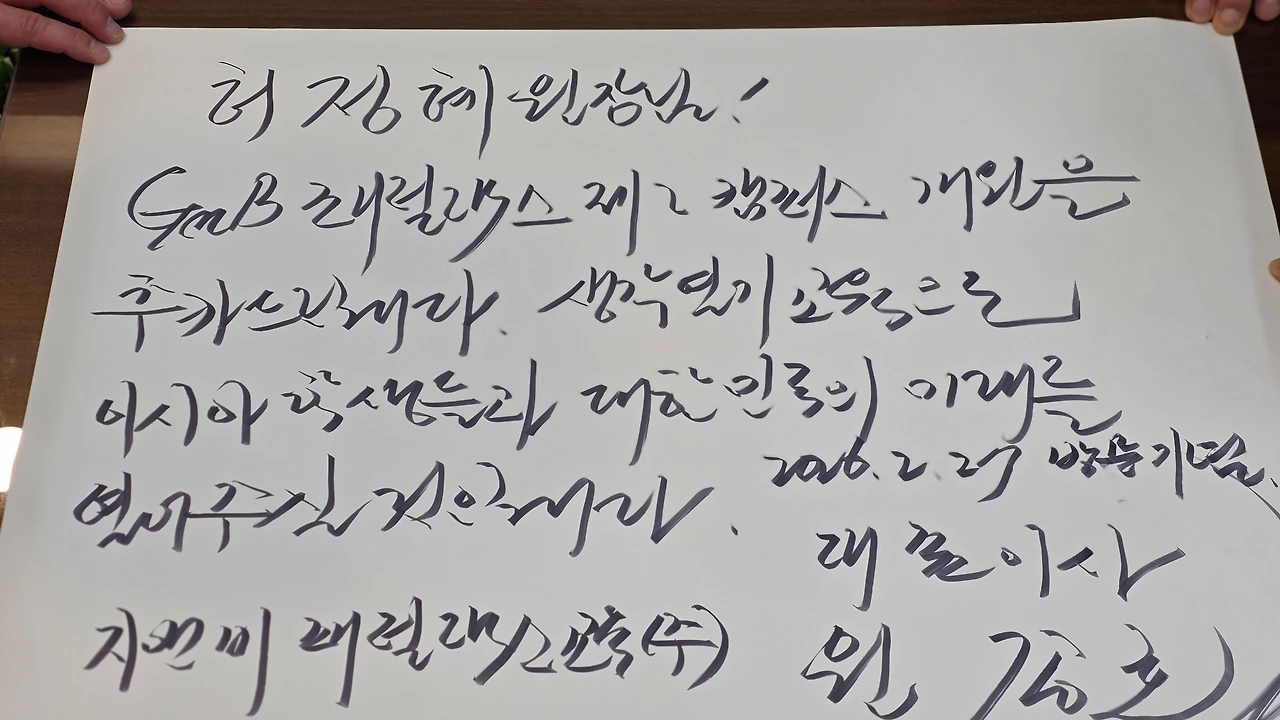 허정혜 원장님!
GnB 패럴랙스 제2 캠퍼스 개원을
축하드립니다. 생각열기 교육으로
아시아 학생들과 대한민국의 미래를
열어주실 것입니다.
2026. 2. 27 방문기념.
대표이사
지앤비 패럴랙스교육(주)
원